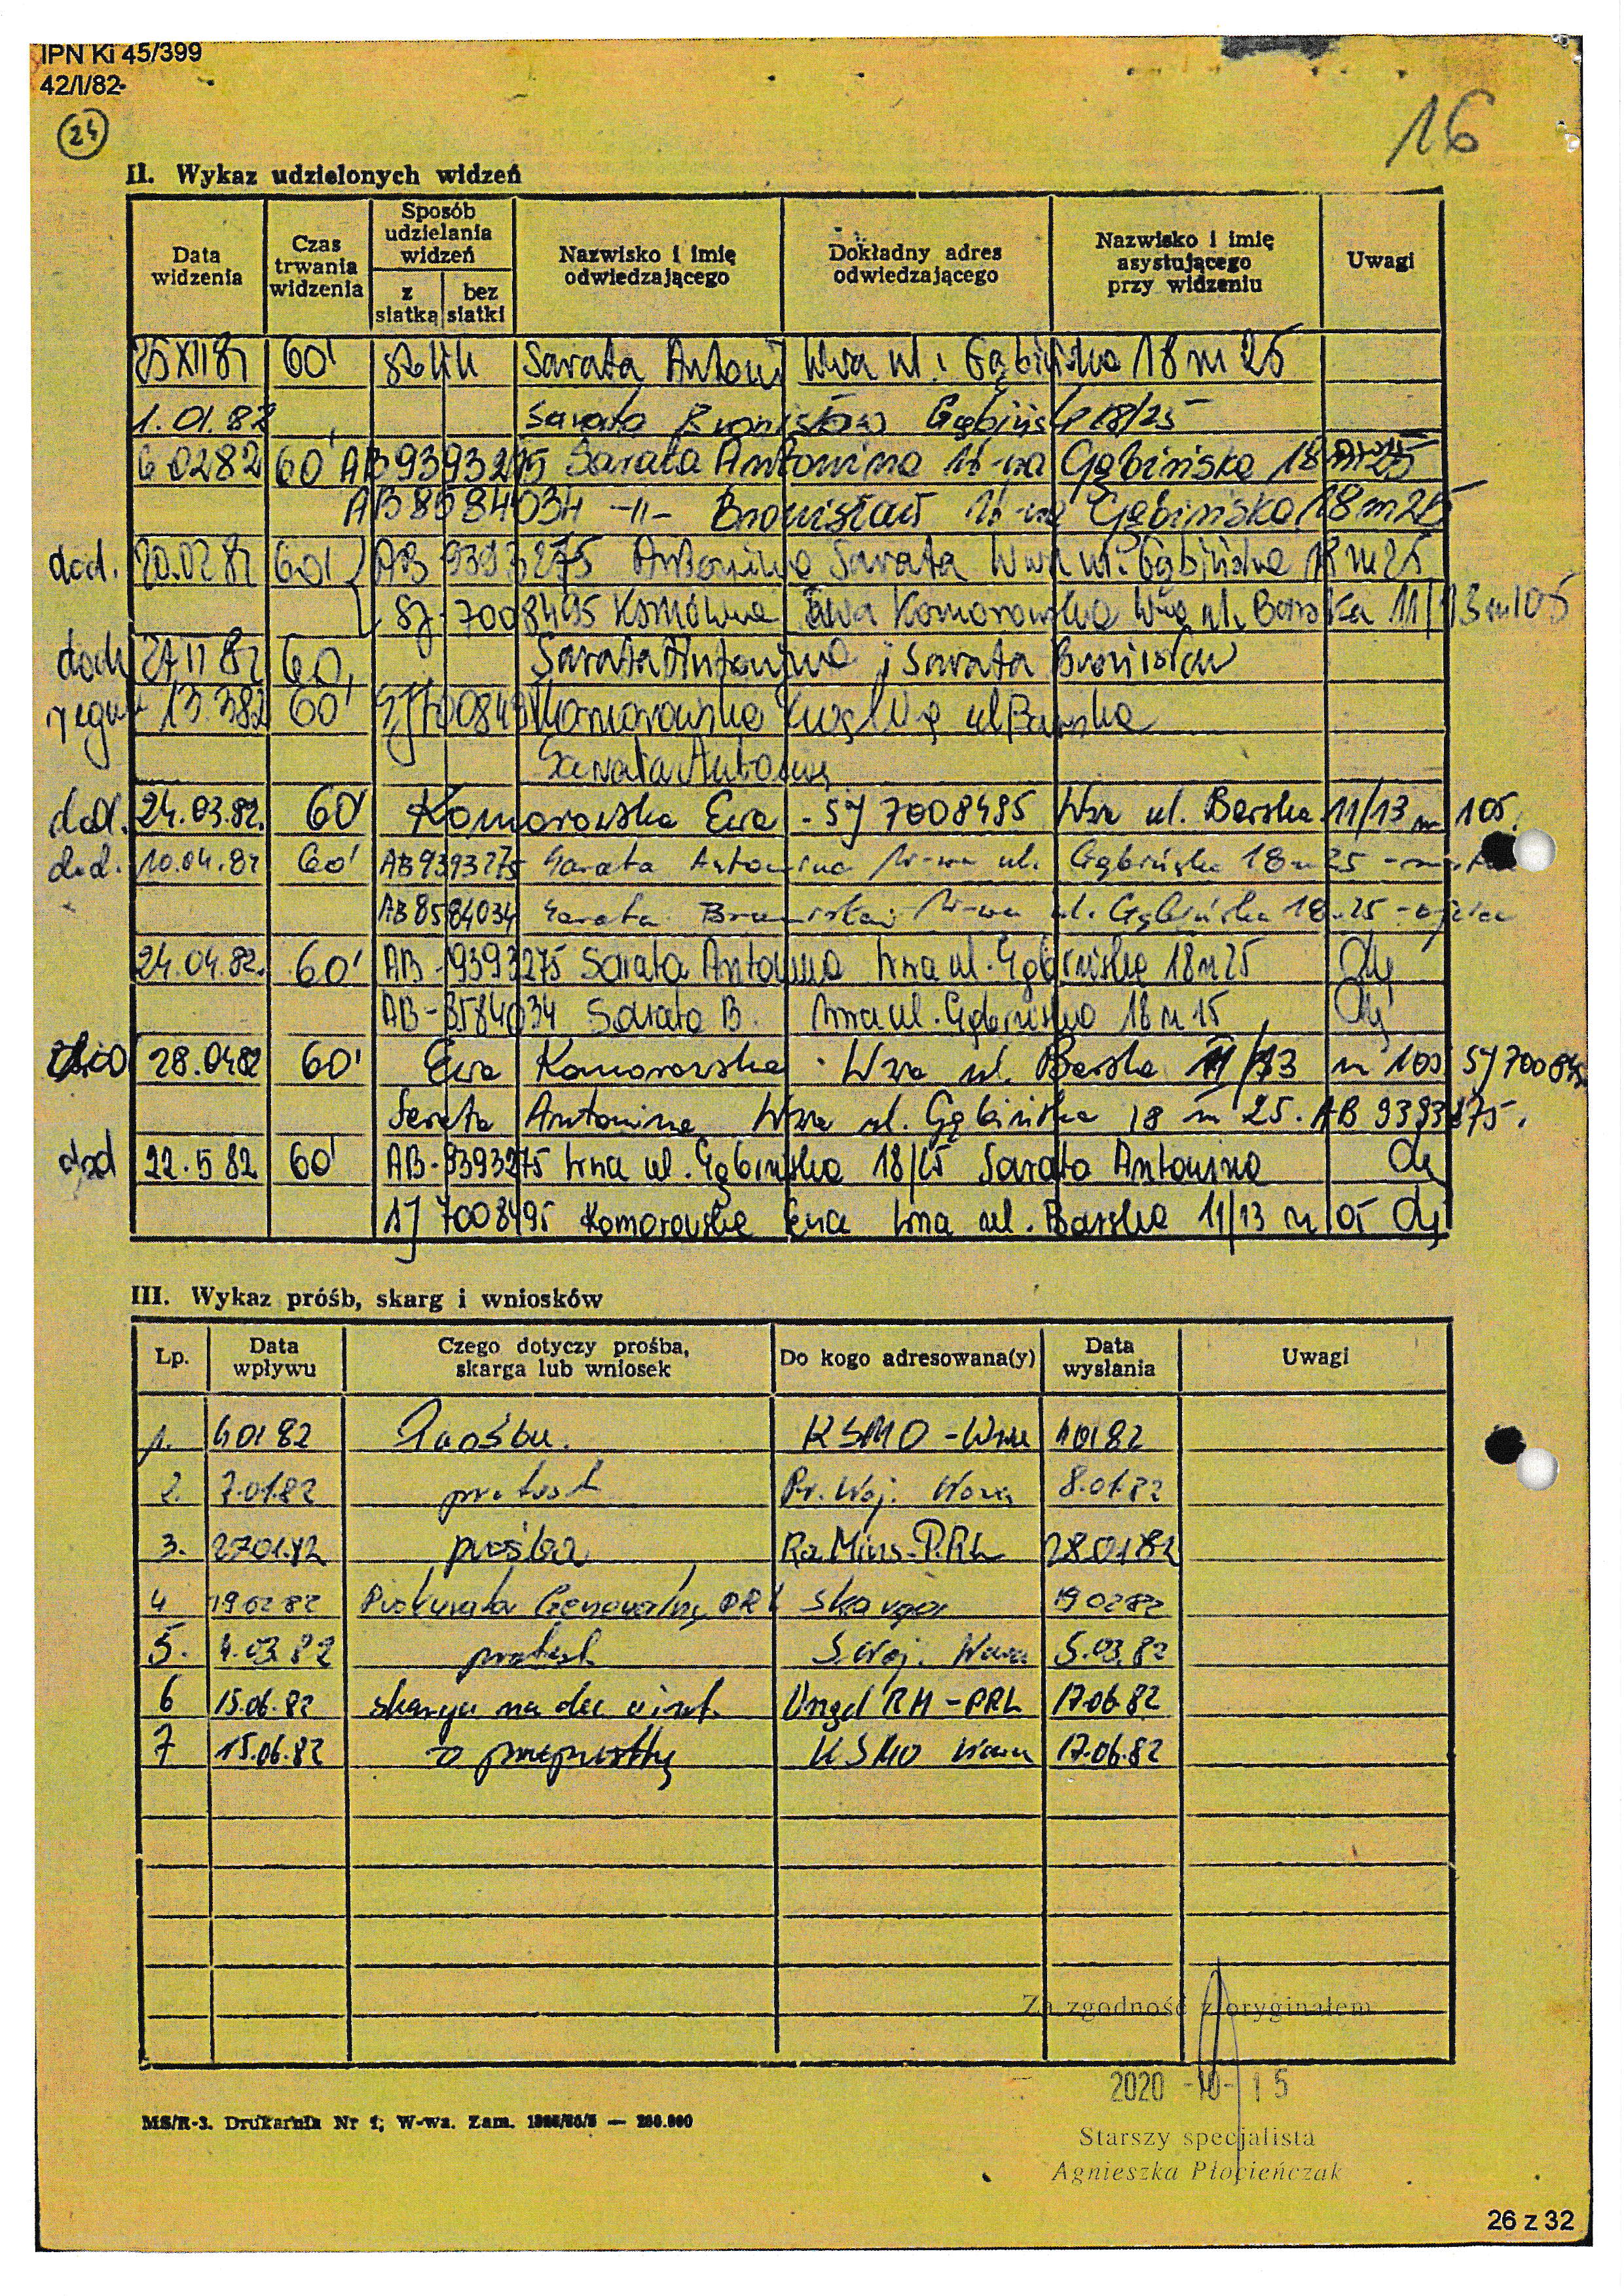 IPN Ki 45/399
42/I/82
24
16
II. Wykaz udzielonych widzeń
Data widzenia
Czas trwania widzenia
Sposób udzielania widzeń
z siatką
bez siatki
Nazwisko i imię odwiedzającego
Dokładny adres odwiedzającego
Nazwisko i imię asystującego przy widzeniu
Uwagi
25 XII 81 60' Sarata Wwa ul. Gąbińska 18 m 25
1.01.82 Sarata Bronisław Gąbińska 18/25
6 02 82 60' AB 9393275 Sarata Antonina W-wa Gąbińska 18 m 25
AB 8584034 -"- Bronisław W-wa Gąbińska 18 m 25
dod. 20.02 82 60' AB 9393275 Antonina Sarata Wwa ul. Gąbińska 18 m 25
SJ-7008495 Ewa Komorowska Wwa ul. Barska 11/13 m 105
27 II 82 60, Sarata Antonina i Sarata Bronisław
13 3 82 60' Komorowska Ewa ul Barska
Sarata Antonina
dod. 24.03.82. 60' Komorowska Ewa - SJ 7008495 Wwa ul. Barska 11/13 m 105.
dod. 10.04.82 60' AB 9393275 Sarata Antonina W-wa ul. Gąbińska 18 m 25 - matka
AB 8584034 Sarata Bronisław W-wa ul. Gąbińska 18 m 25 - ojciec
24.04.82. 60' AB-9393275 Sarata Antonina Wwa ul. Gąbińska 18 m 25
AB-8584034 Sarata B. Wwa ul. Gąbińska 18 m 15
28.04 82 60' Ewa Komorowska Wwa ul. Barska 11/13 m 105 SJ 70084
Sarata Antonina Wwa ul. Gąbińska 18 m 25. AB 9393275.
dod 22.5 82 60' AB-9393275 Wwa ul. Gąbińska 18/25 Sarata Antonina
SJ 7008495 Komorowska Ewa Wwa ul. Barska 11/13 m 105
III. Wykaz próśb, skarg i wniosków
Lp.
Data wpływu
Czego dotyczy prośba, skarga lub wniosek
Do kogo adresowana(y)
Data wysłania
Uwagi
1. 4 01 82 KSMO - Wwa 4 01 82
2. 7.01.82 protest Pr. Woj. Wawa 8.01.82
3. 27 01.82 prośba Ra. Mins. P.R.L 28 01 82
4 19 02 82 Prokurator Generalny PRL skarga 19 02 82
5. 4.03.82 protest S. Woj. Wawa 5.03.82
6 15.06.82 skarga na dec. o int. Urząd RM - PRL 17.06.82
7 15.06.82 o przepustkę KSMO Wawa 17.06.82
Za zgodność z oryginałem
2020 -10- 15
Starszy specjalista
Agnieszka Płocieńczak
MS/R-3. Drukarnia Nr 1, W-wa. Zam.
26 z 32